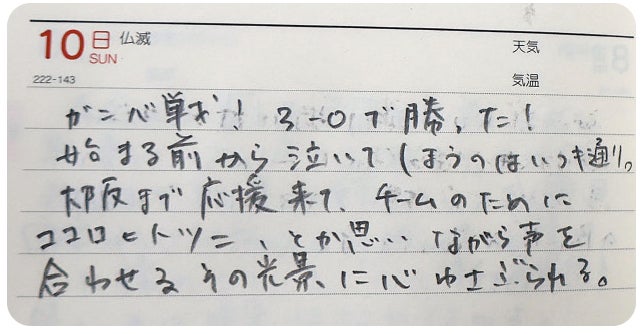 10 日 仏滅
SUN
天気
222-143
気温
ガンバ戦が! 3-0で勝った!
始まる前から泣いてしまうのはいつも通り。
大阪まで応援来て、チームのために
ココロヒトツニ、とか思いながら声を
合わせるその光景に心ゆさぶられる。